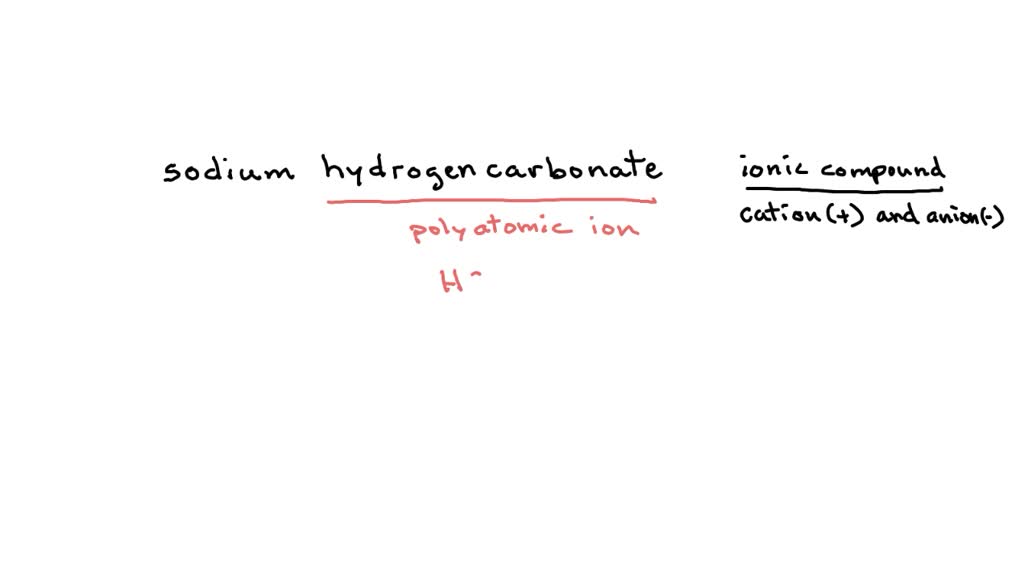 sodium hydrogen carbonate
ionic compound
cation (+) and anion (-)
polyatomic ion
H